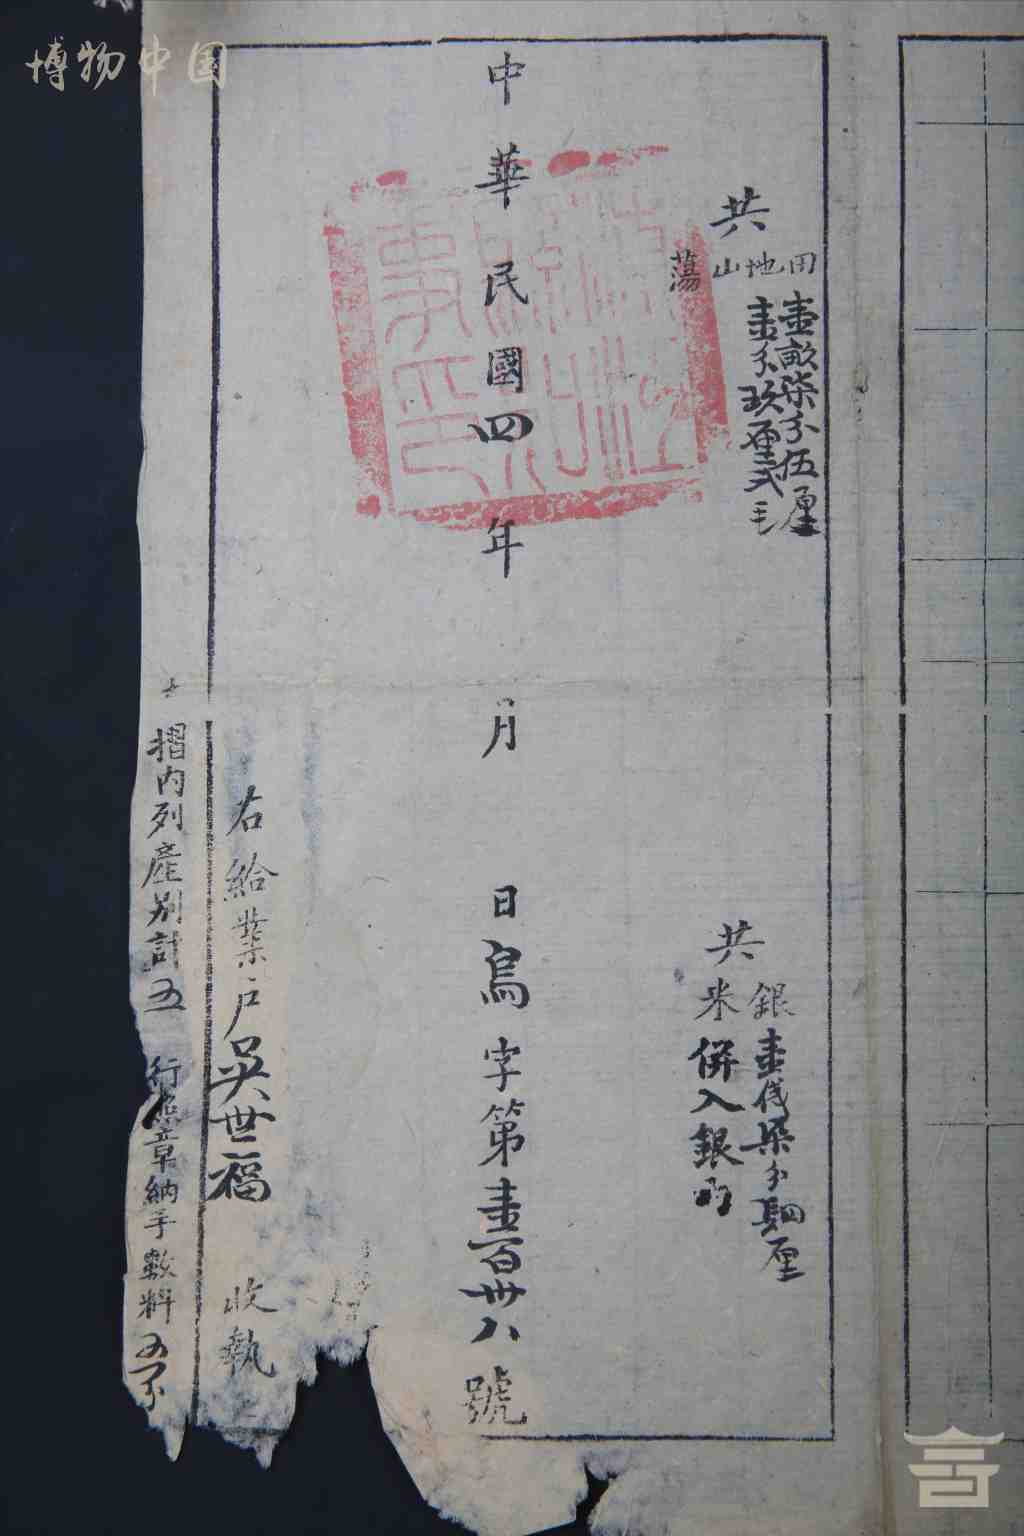 博物中国
共
田 壹畝柒分伍厘
地 壹分玖厘弍毛
山
蕩
共
銀 壹伐柒分肆厘
米 併入銀內
中華民國四年 月 日烏字第壹百卅八號
右給業戶吳世福 收執
摺內列產別計五 行照章納手數料五分